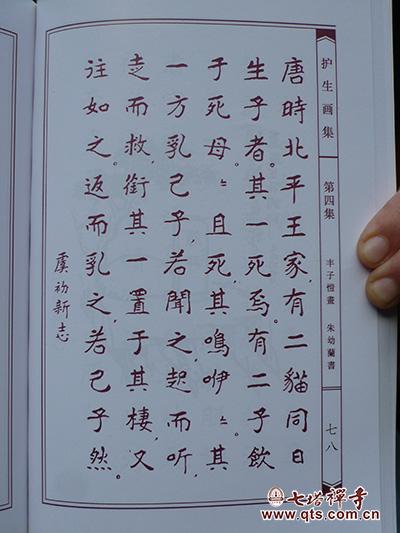 护生画集
第四集
丰子愷畫 朱幼蘭書
七八
唐時北平王家,有二貓同日
生子者。其一死焉。有二子飲
于死母。〻且死,其鳴咿〻。其
一方乳己子,若聞之,起而听,
走而救,銜其一置于其棲,又
往如之。返而乳之,若己子然。
虞初新志
七塔禪寺
www.qts.com.cn